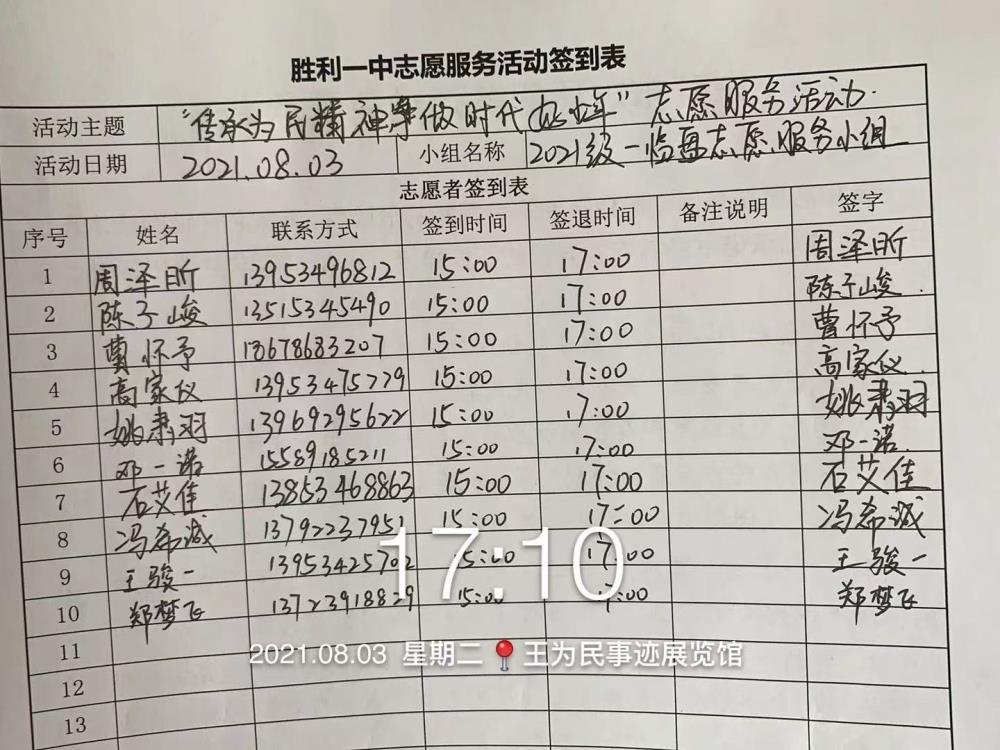 胜利一中志愿服务活动签到表
活动主题 "传承为民精神 争做时代好少年" 志愿服务活动.
活动日期 2021.08.03 小组名称 2021级一临盘志愿服务小组
志愿者签到表
序号 姓名 联系方式 签到时间 签退时间 备注说明 签字
1 周泽昕 13953496812 15:00 17:00 周泽昕
2 陈子峻 13515345490 15:00 17:00 陈子峻
3 曹怀予 13678683207 15:00 17:00 曹怀予
4 高家仪 13953475779 15:00 17:00 高家仪
5 姚肃羽 13969295622 15:00 17:00 姚肃羽
6 邓一诺 15589185211 15:00 17:00 邓一诺
7 石艾佳 13853468863 15:00 17:00 石艾佳
8 冯希诚 13792237951 15:00 17:00 冯希诚
9 王骏一 13953425702 15:00 17:00 王骏一
10 郑梦飞 13723918829 15:00 17:00 郑梦飞
11
12
13
17:10
2021.08.03 星期二 王为民事迹展览馆